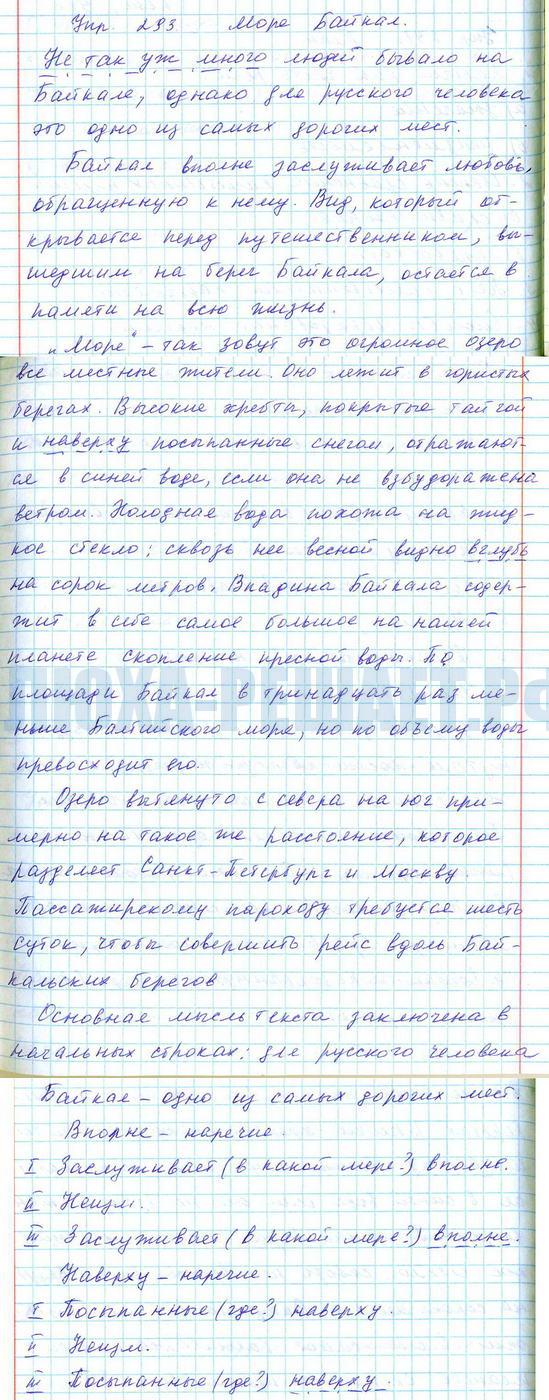 Упр. 293 Море Байкал.
Не так уж много людей бывало на
Байкале, однако для русского человека
это одно из самых дорогих мест.
Байкал вполне заслуживает любовь,
обращенную к нему. Вид, который от-
крывается перед путешественником, вы-
шедшим на берег Байкала, остается в
памяти на всю жизнь.
„Море" – так зовут это огромное озеро
все местные жители. Оно лежит в гористых
берегах. Высокие хребты, покрытые тайгой
и наверху посыпанные снегом, отражают-
ся в синей воде, если она не взбудоражена
ветром. Холодная вода похожа на жид-
кое стекло; сквозь нее весной видно вглубь
на сорок метров. Впадина Байкала содер-
жит в себе самое большое на нашей
планете скопление пресной воды. По
площади Байкал в тринадцать раз ме-
ньше Балтийского моря, но по объему воды
превосходит его.
Озеро вытянуто с севера на юг при-
мерно на такое же расстояние, которое
разделяет Санкт-Петербург и Москву.
Пассажирскому пароходу требуется шесть
суток, чтобы совершить рейс вдоль Бай-
кальских берегов
Основная мысль текста заключена в
начальных строках: для русского человека
Байкал – одно из самых дорогих мест.
Вполне – наречие.
I Заслуживает (в какой мере?) вполне.
II Неизм.
III Заслуживает (в какой мере?) вполне.
Наверху – наречие.
I Посыпанные (где?) наверху.
II Неизм.
III Посыпанные (где?) наверху.